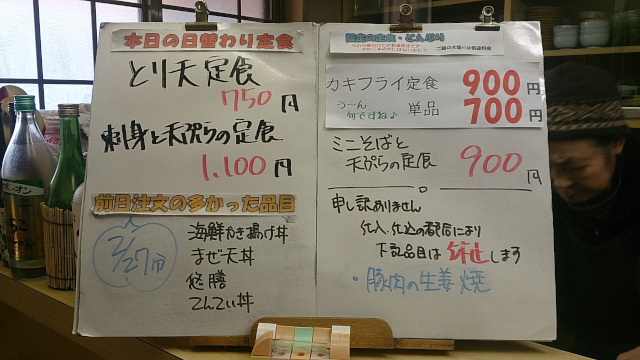 本日の日替わり定食
とり天定食
750円
刺身と天ぷらの定食
1,100円
前日注文の多かった品目
2/27分
海鮮かき揚げ丼
まぜ天丼
悠膳
てんてい丼
限定の定食・どんぶり
ご飯の大盛りは別途料金
カキフライ定食 900円
うーん何ですね♪
単品 700円
ミニそばと
天ぷらの定食 900円
申し訳ありません
仕入、仕込の都合により
下記品目は休止します
・豚肉の生姜焼